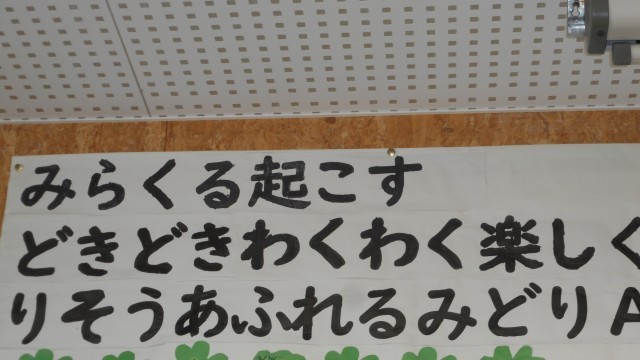 みらくる起こす
どきどきわくわく楽しく
りそうあふれるみどりA